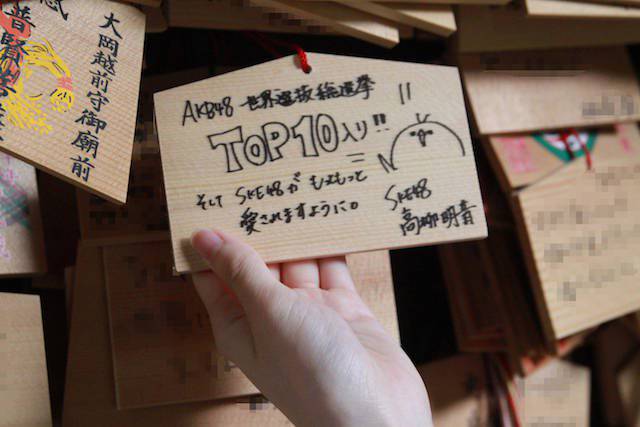 大岡越前守御廟前
普賢
AKB48 世界選抜総選挙
TOP10入り!!
そして SKE48が もっともっと
愛されますように。
SKE48
高柳明音